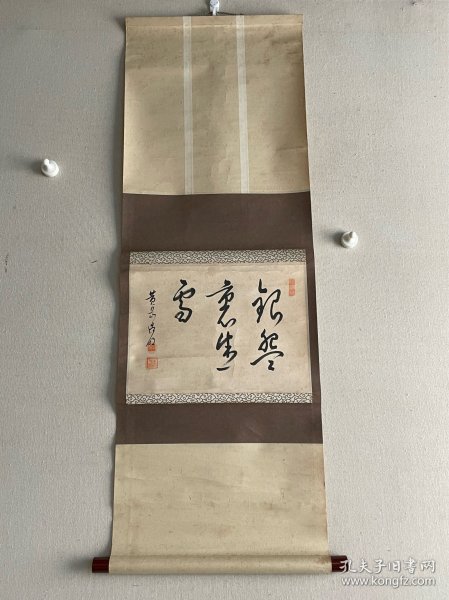 銀盌
裏盛
雪
孔夫子旧书网
www.kongfz.com